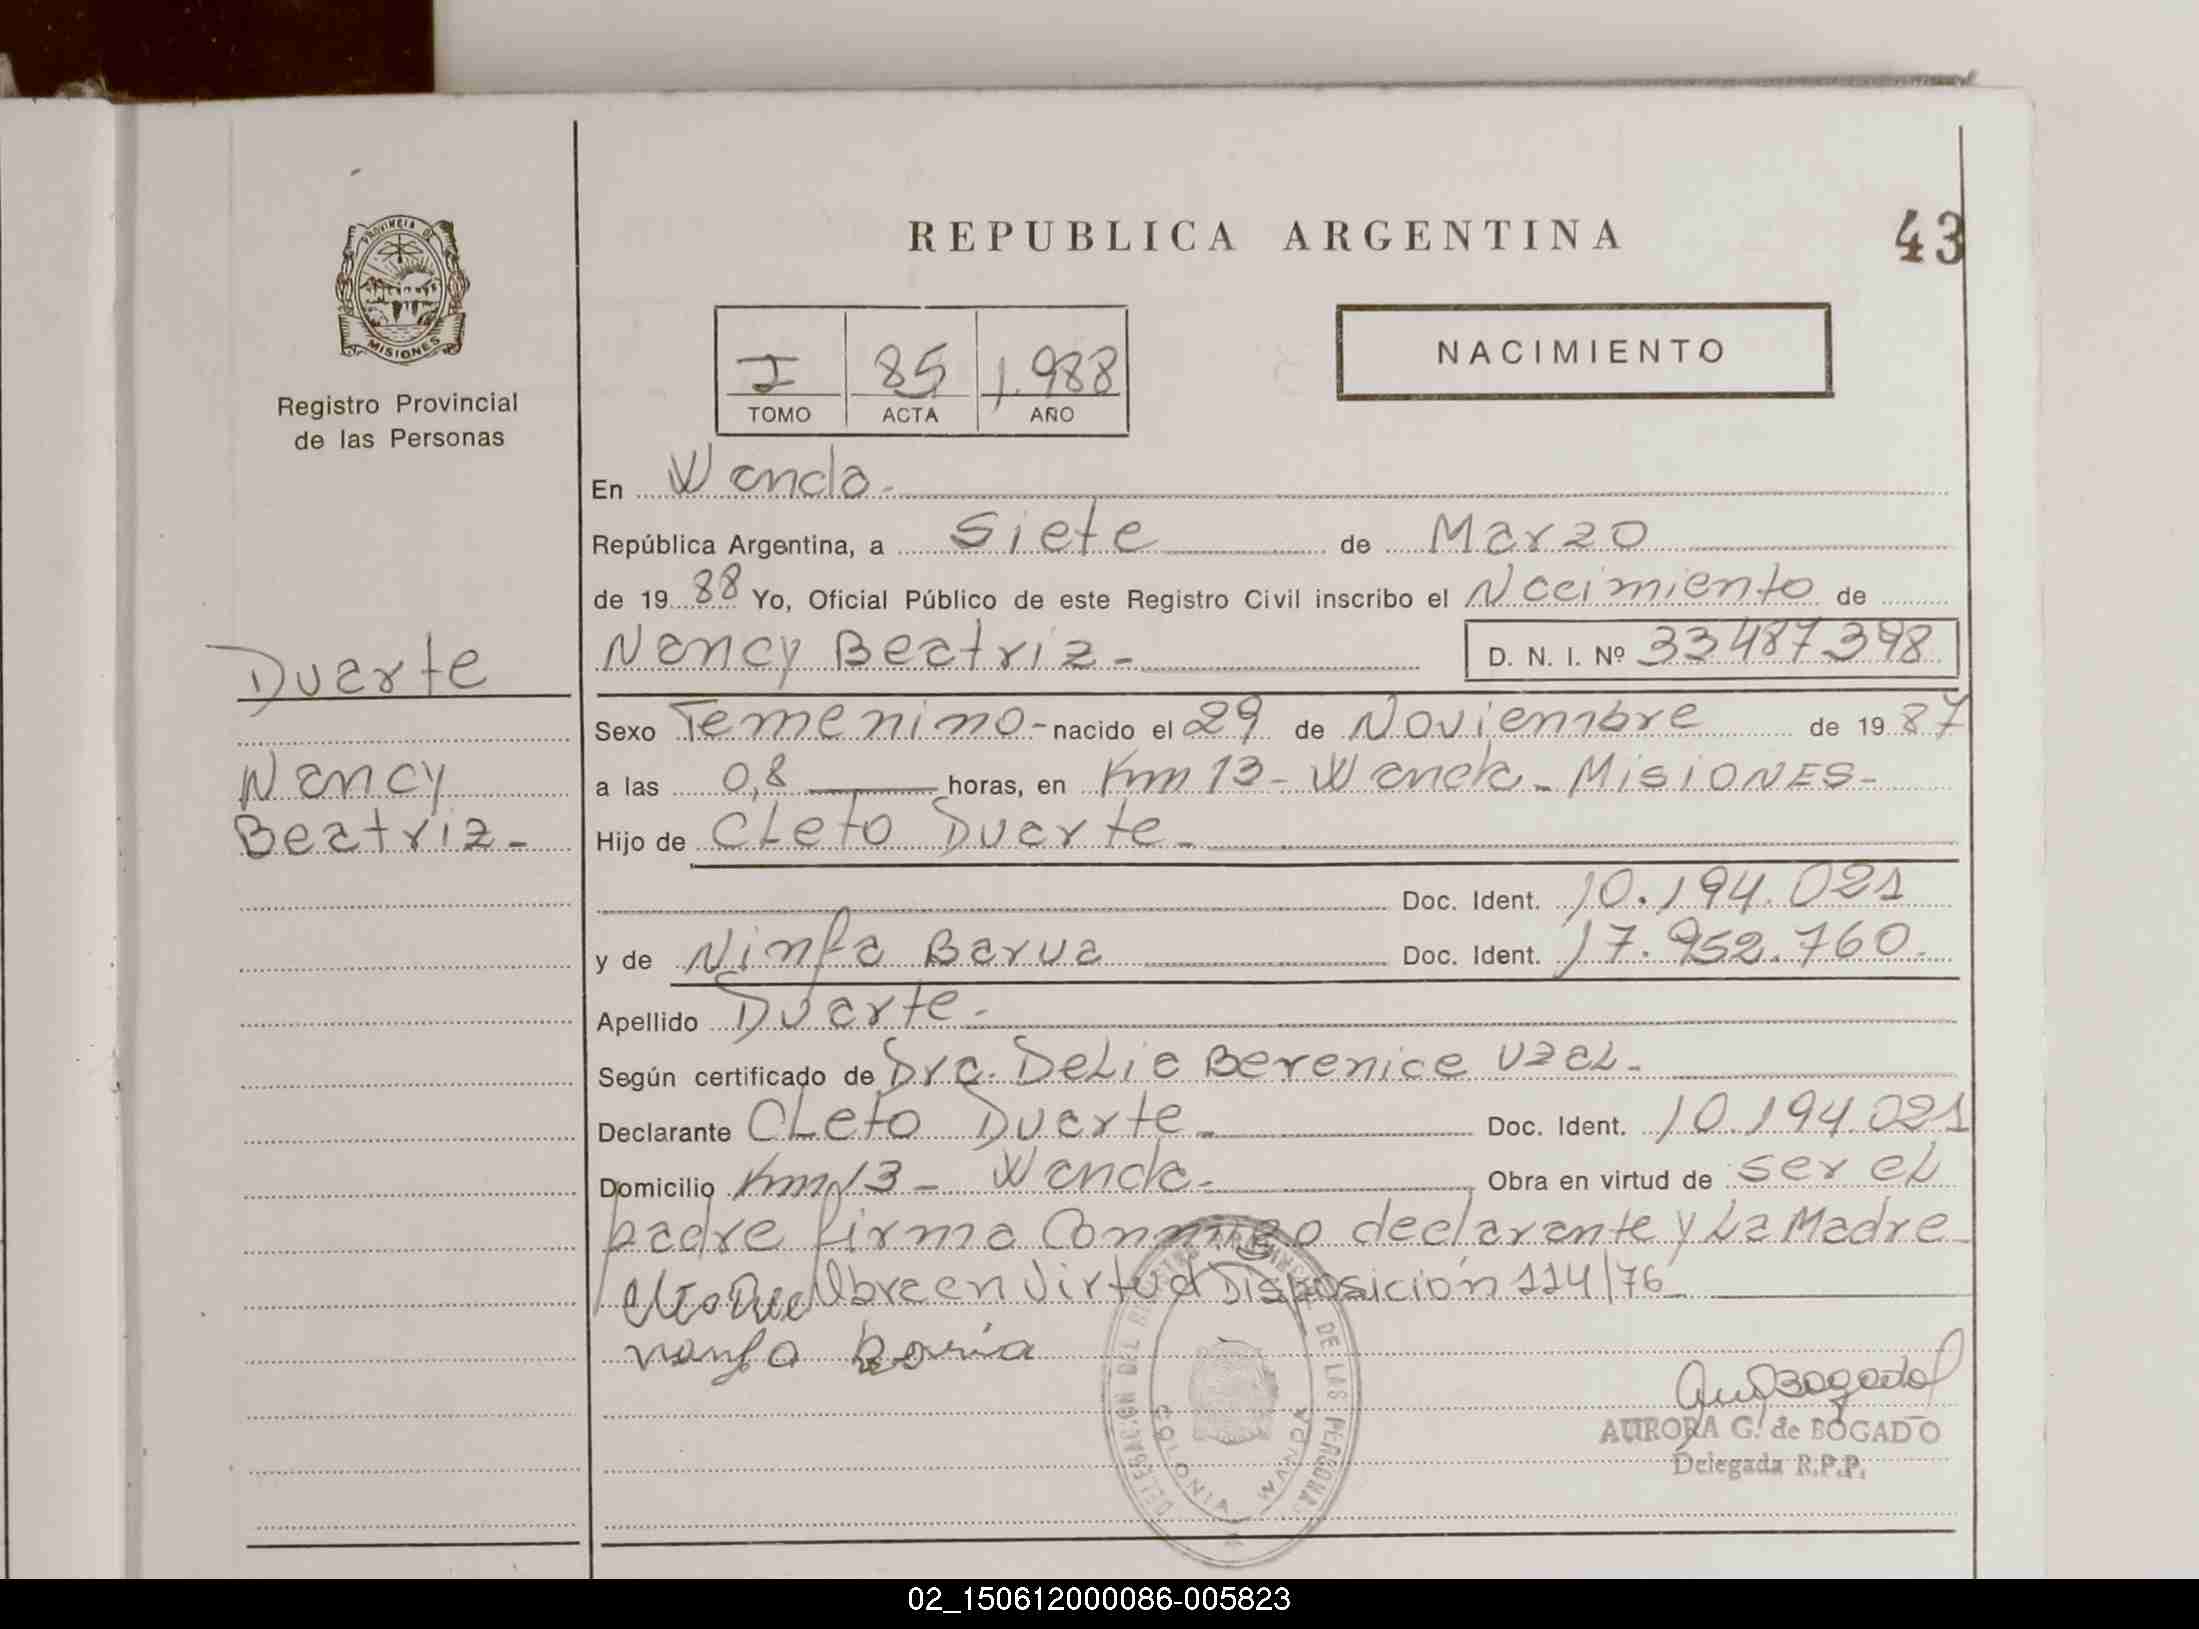 REPUBLICA ARGENTINA
43
PROVINCIA DE
MISIONES
Registro Provincial
de las Personas
I 85 1.988
TOMO ACTA AÑO
NACIMIENTO
En Wanda.
República Argentina, a Siete de Marzo
de 1988 Yo, Oficial Público de este Registro Civil inscribo el Nacimiento de
Nancy Beatriz - D. N. I. Nº 33487398
Duarte
Nancy
Beatriz -
Sexo Femenino - nacido el 29 de Noviembre de 1987
a las 0,8 horas, en Km 13 - Wanda - MISIONES -
Hijo de CLeto Duarte -
Doc. Ident. 10.194.021
y de Ninfa Barua Doc. Ident. 17.952.760.
Apellido Duarte -
Según certificado de Dra. DeLia Berenice UzaL -
Declarante CLeto Duarte - Doc. Ident. 10.194.021
Domicilio Km 13 - Wanda - Obra en virtud de ser eL
padre firma Conmigo declarante y La Madre
Obra en Virtud Disposición 114/76
COLONIA WANDA
AURORA G. de BOGADO
Delegada R.P.P.
02_150612000086-005823